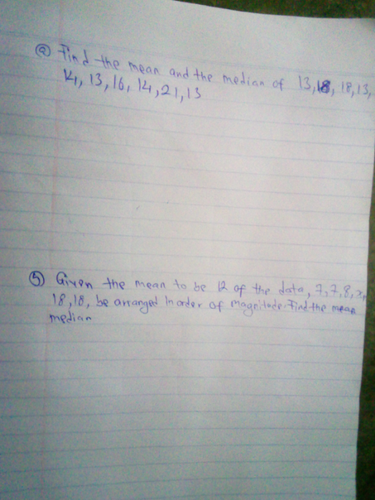 ② Find the mean and the median of 13, 18, 18, 13,
14, 13, 16, 14, 21, 13
⑤ Given the mean to be 12 of the data, 7, 7, 8, x,
18, 18, be arranged in order of magnitude. Find the mean
median